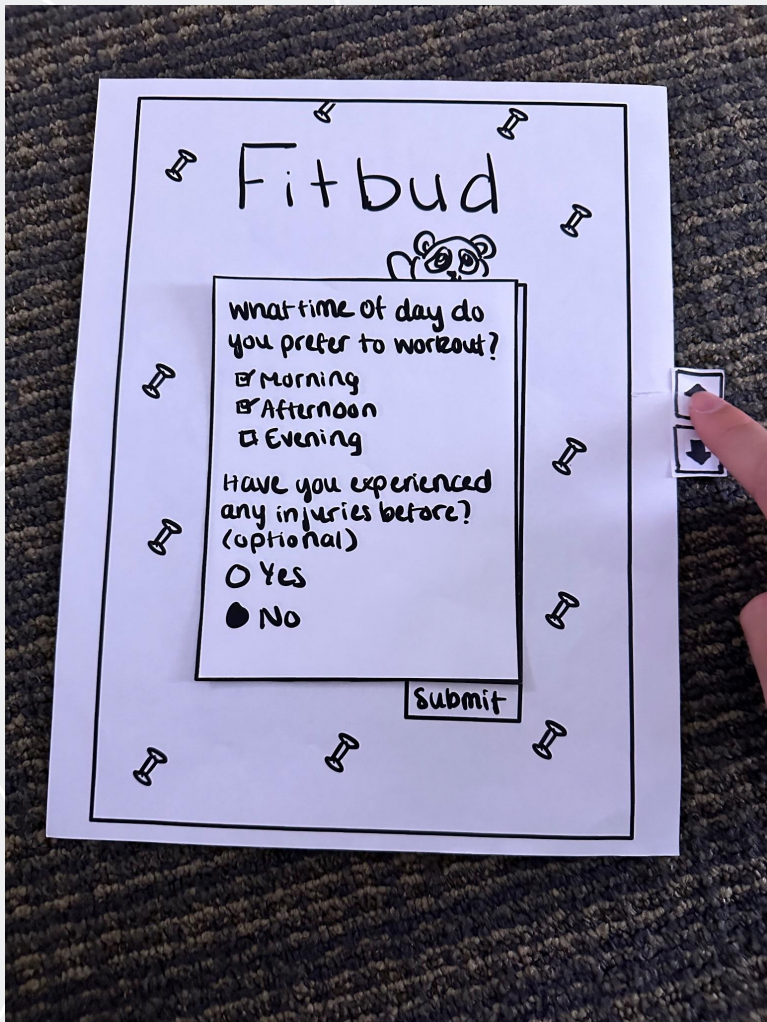 Fitbud
What time of day do
you prefer to workout?
Morning
Afternoon
Evening
Have you experienced
any injuries before?
(optional)
Yes
No
Submit